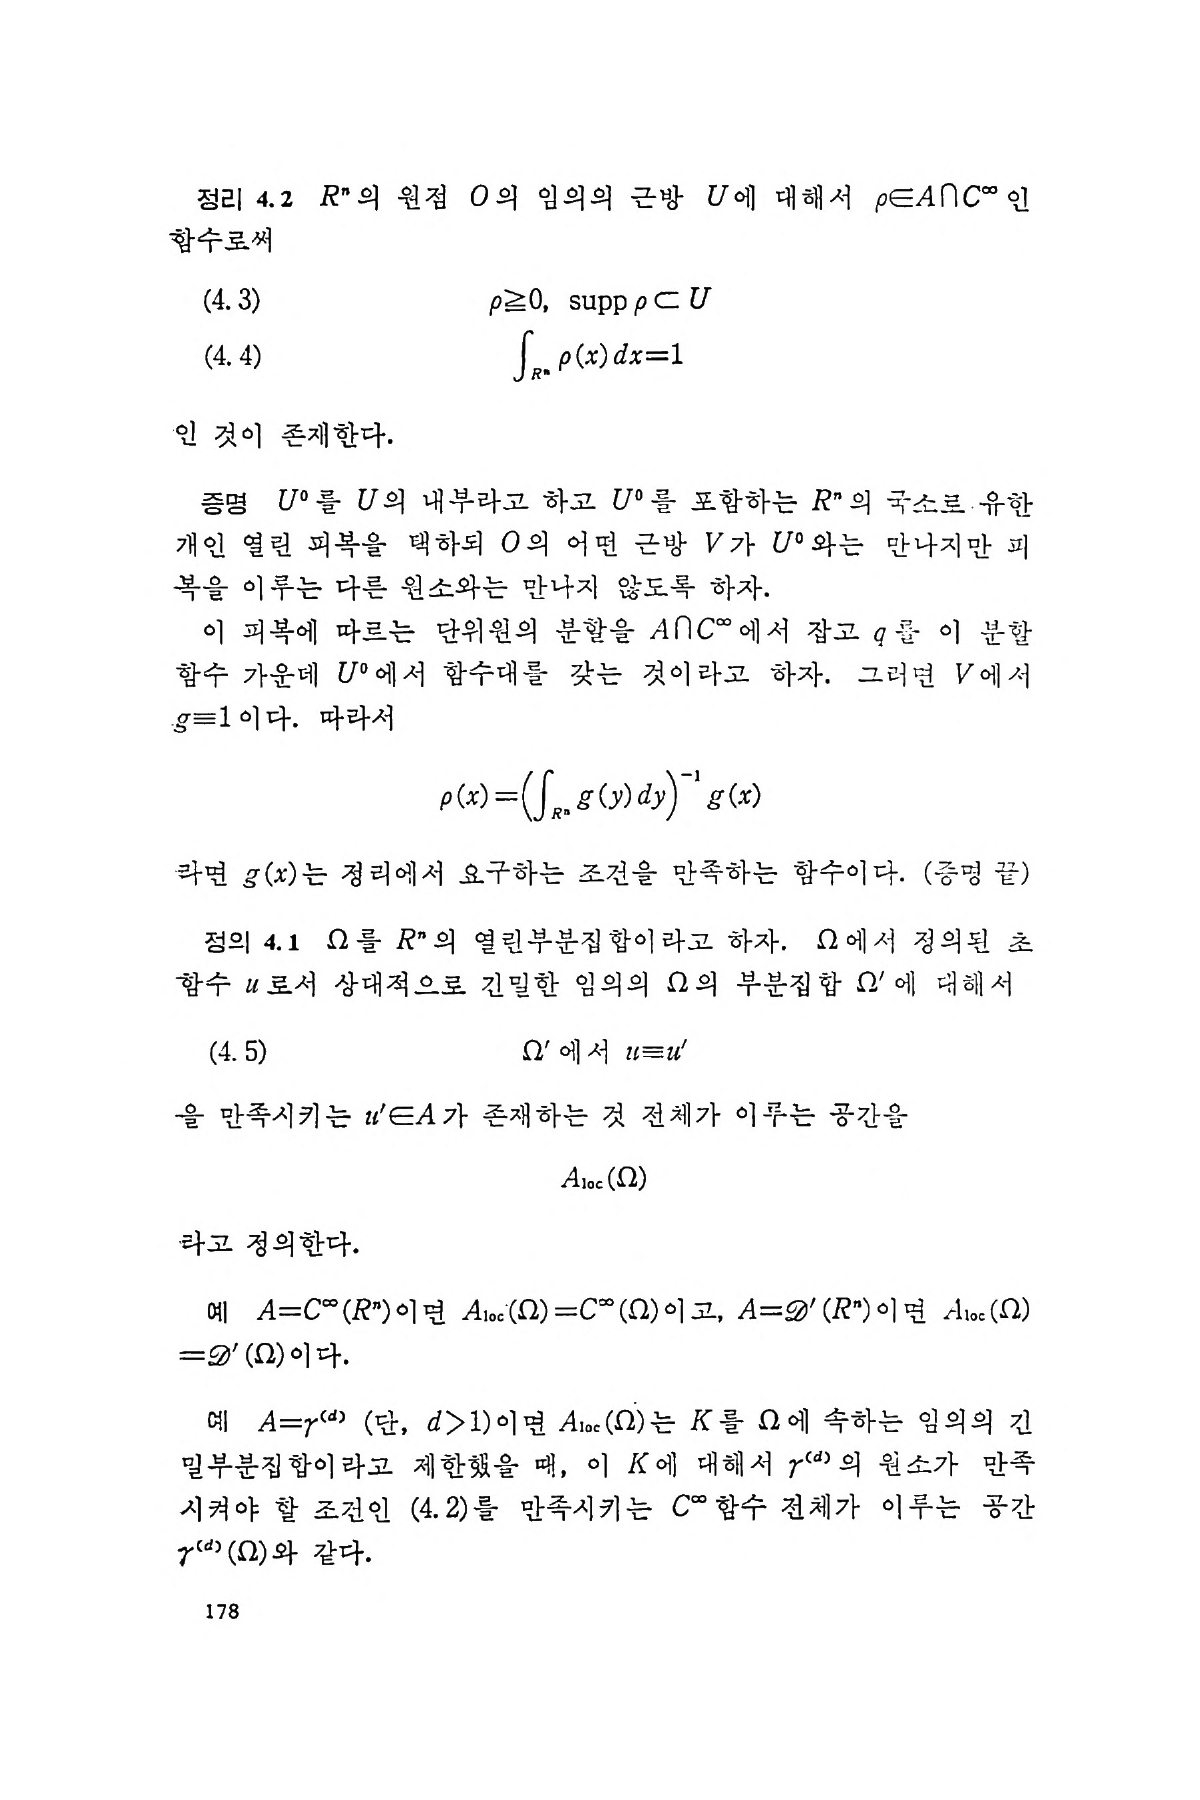 정리 4.2 Rⁿ의 원점 O의 임의의 근방 U에 대해서 ρ∈A∩C^∞인
함수로써
(4.3) ρ≧0, supp ρ⊂U
(4.4) ∫_{Rⁿ} ρ(x)dx=1
인 것이 존재한다.
증명 U⁰를 U의 내부라고 하고 U⁰를 포함하는 Rⁿ의 국소로 유한
개인 열린 피복을 택하되 O의 어떤 근방 V가 U⁰와는 만나지만 피
복을 이루는 다른 원소와는 만나지 않도록 하자.
이 피복에 따르는 단위원의 분할을 A∩C^∞에서 잡고 q를 이 분할
함수 가운데 U⁰에서 함수대를 갖는 것이라고 하자. 그러면 V에서
g≡1이다. 따라서
ρ(x)=(∫_{Rⁿ} g(y)dy)^{-1} g(x)
라면 g(x)는 정리에서 요구하는 조건을 만족하는 함수이다. (증명 끝)
정의 4.1 Ω를 Rⁿ의 열린부분집합이라고 하자. Ω에서 정의된 초
함수 u로서 상대적으로 긴밀한 임의의 Ω의 부분집합 Ω′에 대해서
(4.5) Ω′에서 u≡u′
을 만족시키는 u′∈A가 존재하는 것 전체가 이루는 공간을
A_{loc}(Ω)
라고 정의한다.
예 A=C^∞(Rⁿ)이면 A_{loc}(Ω)=C^∞(Ω)이고, A=𝒟′(Rⁿ)이면 A_{loc}(Ω)
=𝒟′(Ω)이다.
예 A=γ^{(d)} (단, d>1)이면 A_{loc}(Ω)는 K를 Ω에 속하는 임의의 긴
밀부분집합이라고 제한했을 때, 이 K에 대해서 γ^{(d)}의 원소가 만족
시켜야 할 조건인 (4.2)를 만족시키는 C^∞함수 전체가 이루는 공간
γ^{(d)}(Ω)와 같다.
178